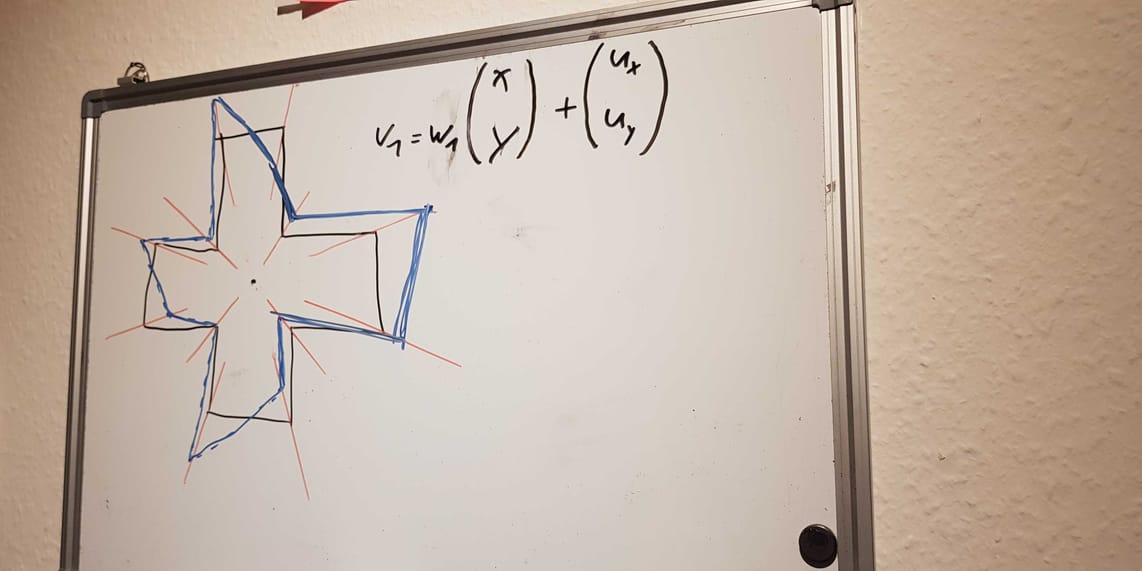 v₁ = w₁ (x y) + (uₓ u_y)